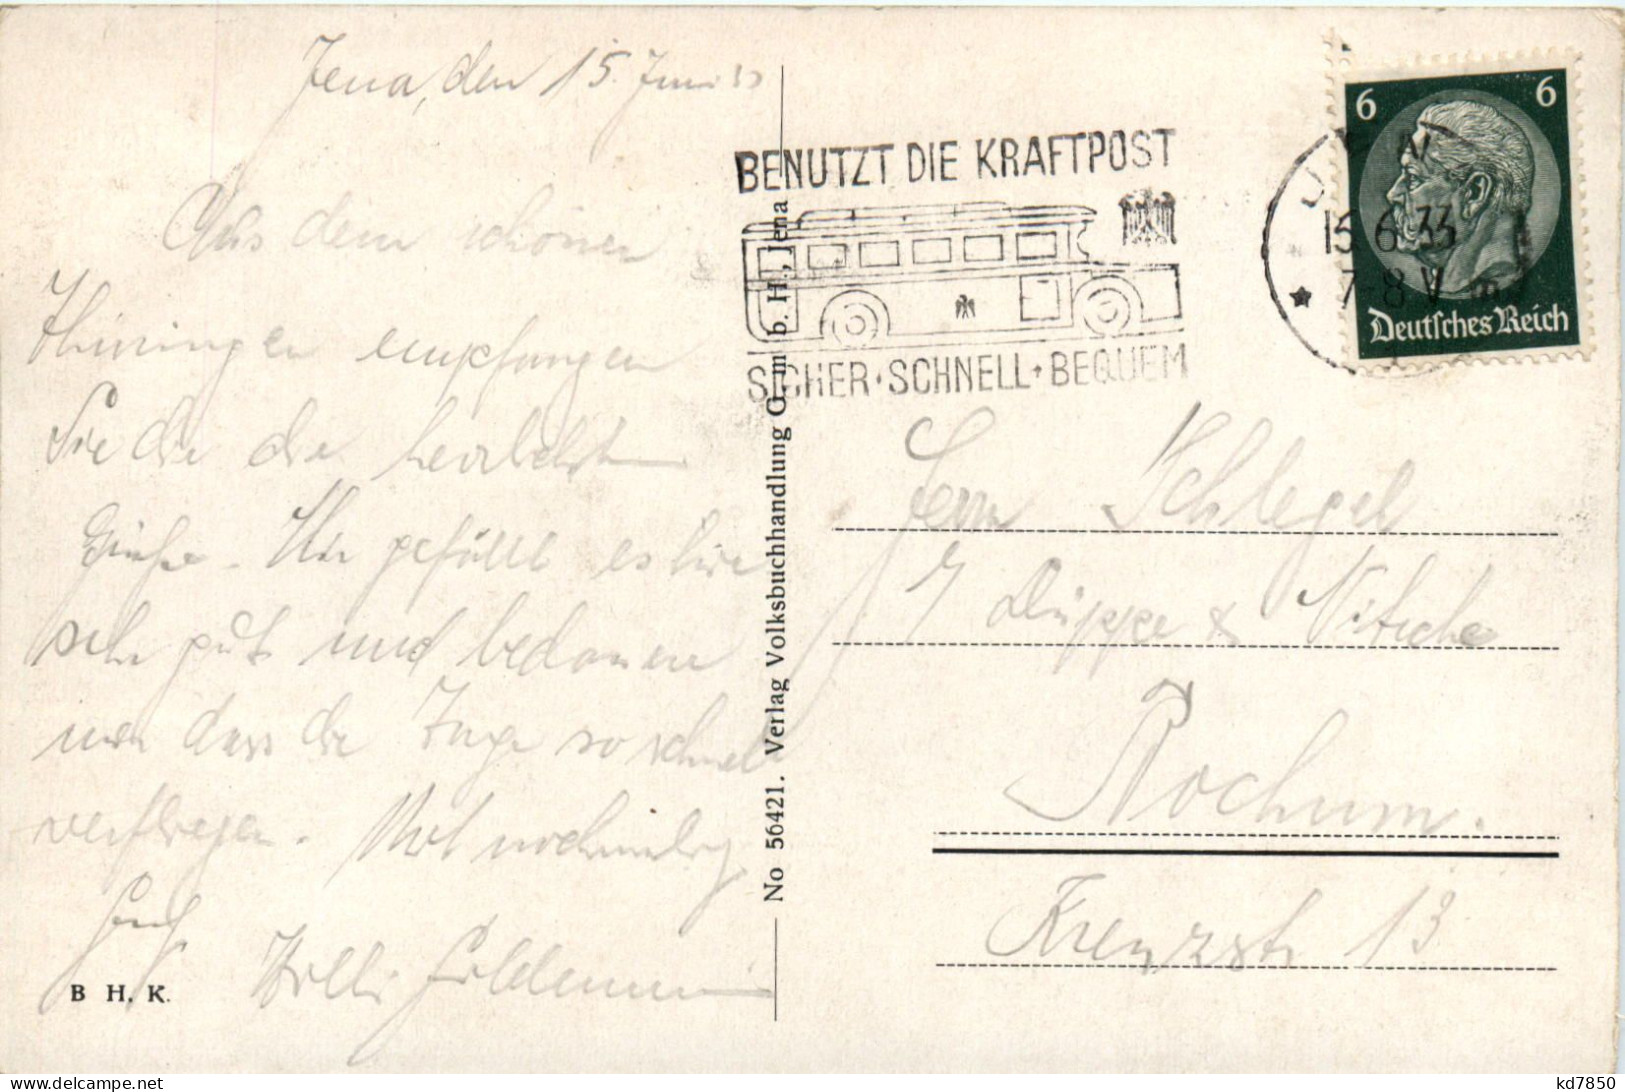 Jena, den 15. Juni 33
Aus dem schönen
Thüringen empfangen
Sie die die herzlichsten
Grüße. Mir gefällt es hier
sehr gut und bedauere
nur dass die Tage so schnell
verfliegen. Mit nochmalig
Willi
B H. K.
No 56421. Verlag Volksbuchhandlung G. m. b. H., Jena
BENUTZT DIE KRAFTPOST
SICHER · SCHNELL · BEQUEM
JENA
15.6.33
7-8 V
6 6
Deutsches Reich
Herrn Schlegel
Düppe & Nitsche
Bochum.
Kreuzstr 13
kd7850